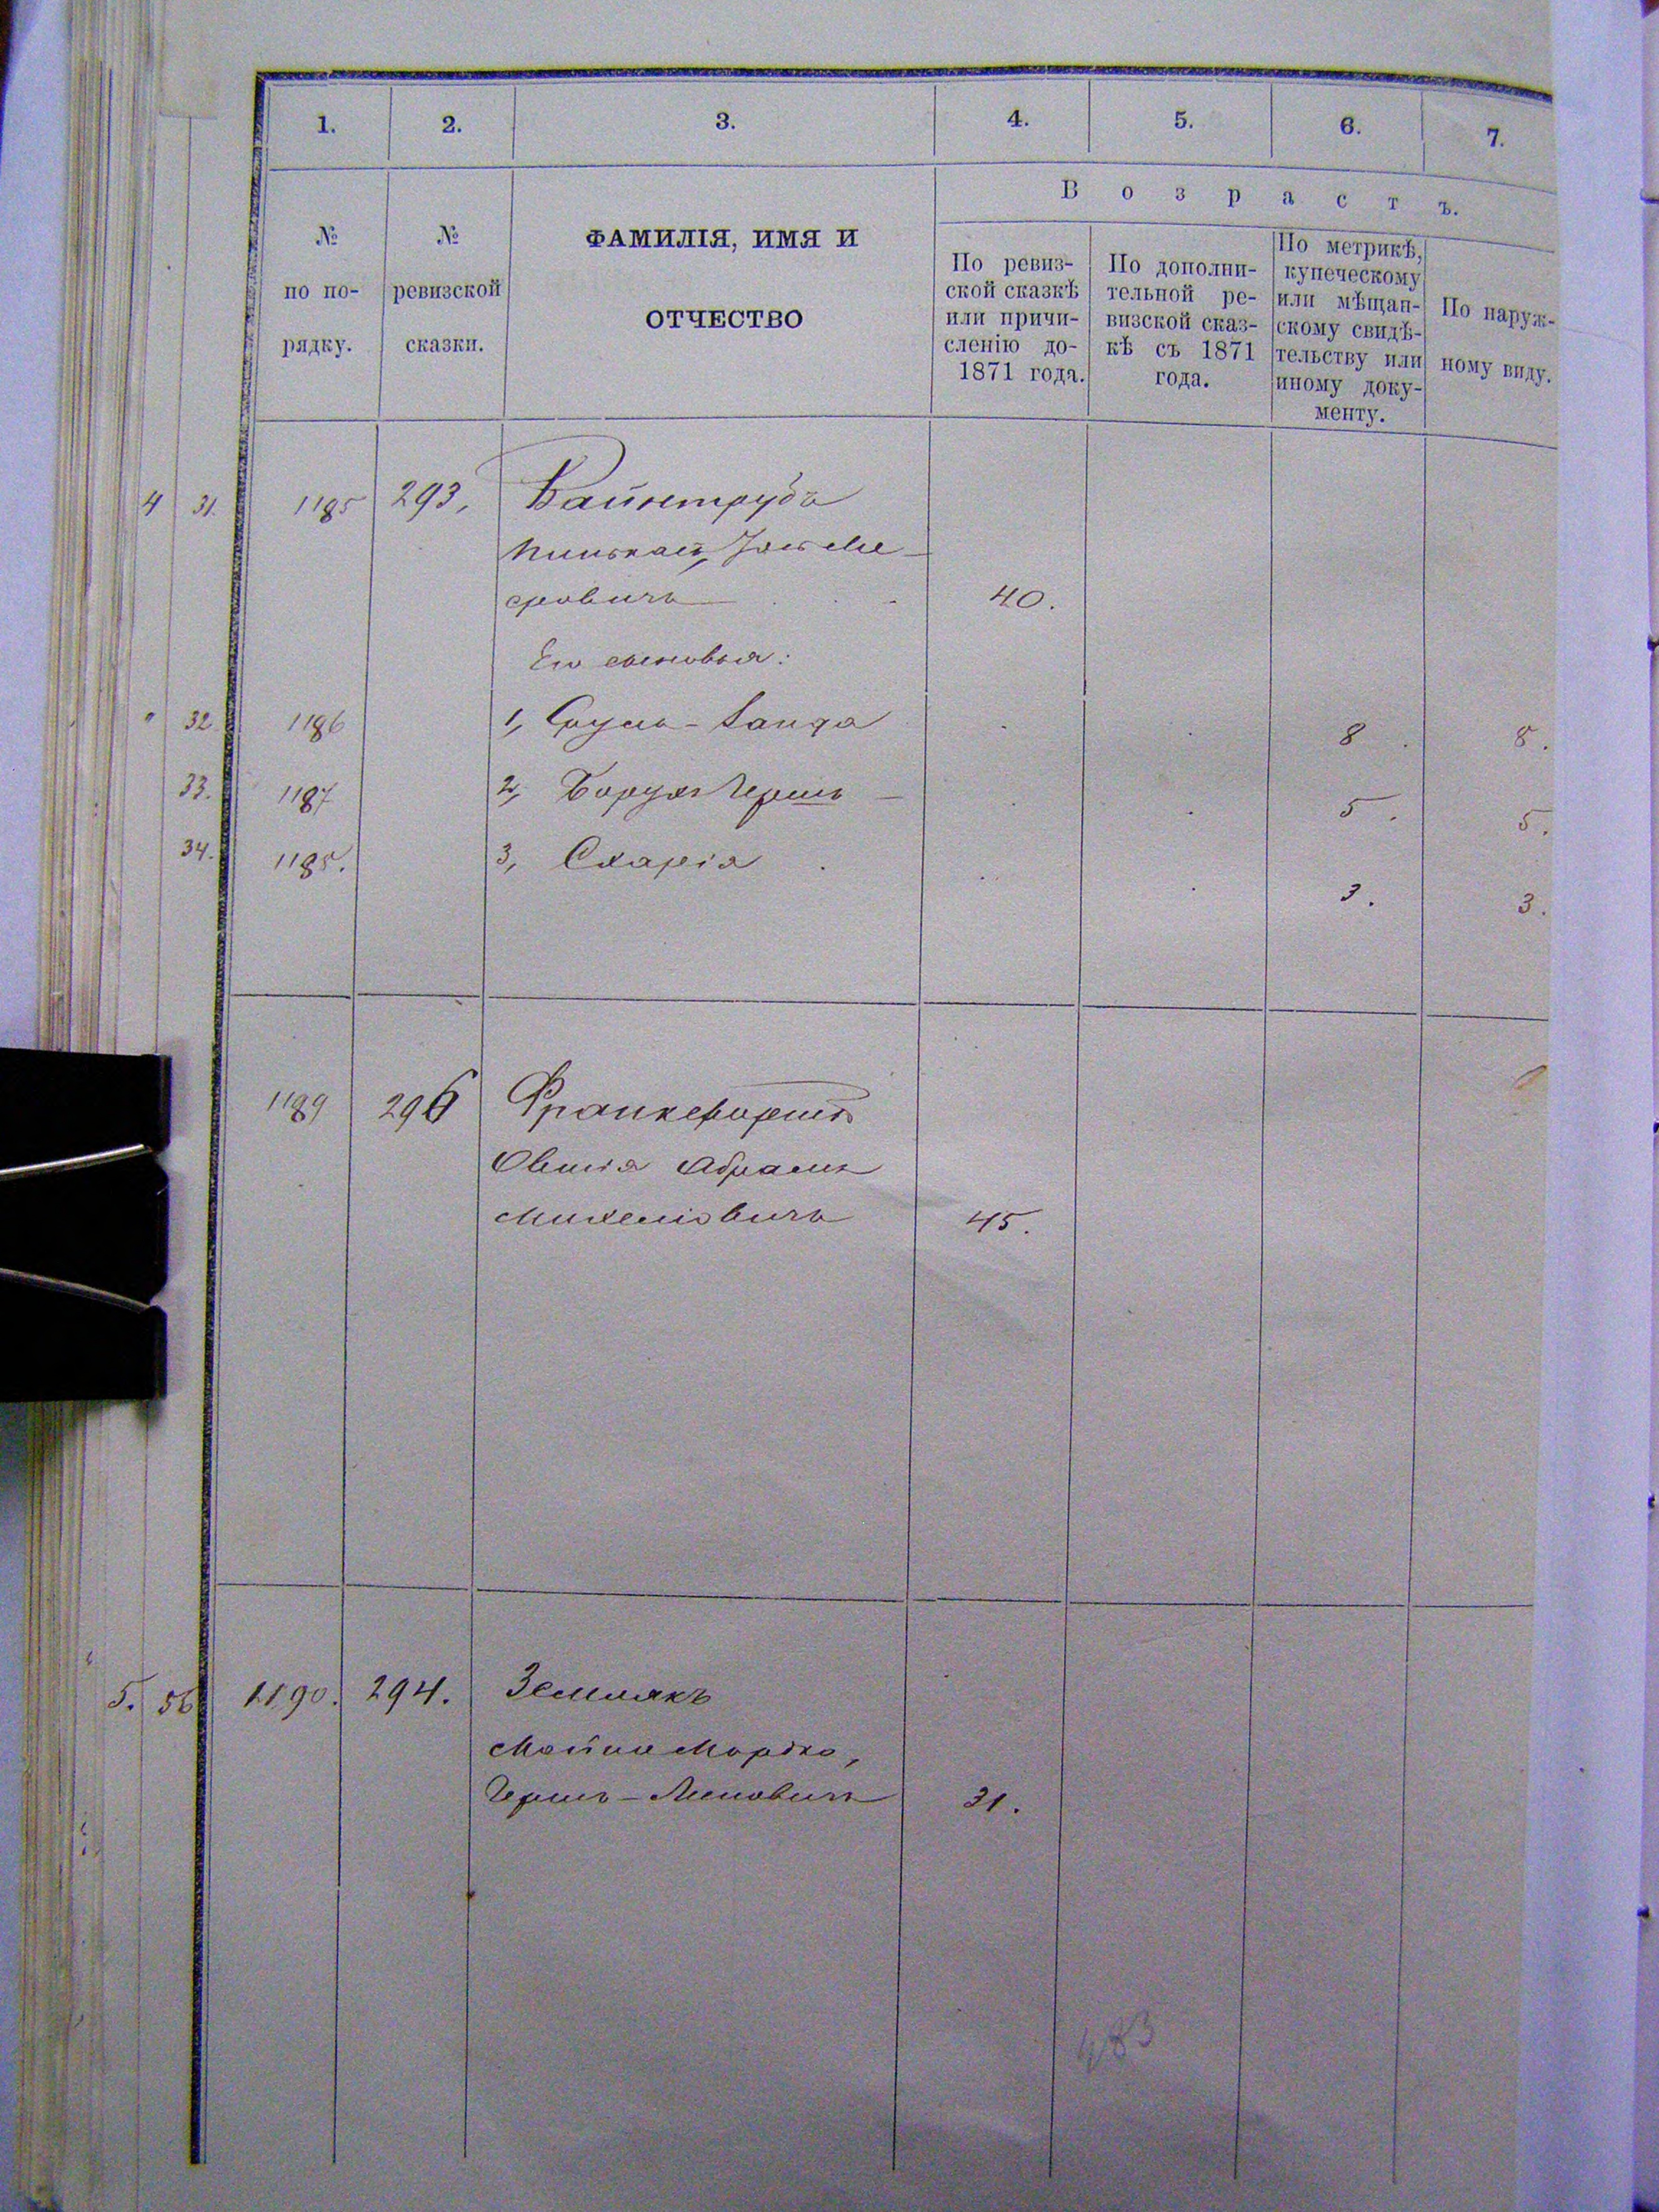 1. 2. 3. 4. 5. 6. 7.
№ по по-рядку.
№ ревизской сказки.
ФАМИЛІЯ, ИМЯ И
ОТЧЕСТВО
В о з р а с т ъ.
По ревиз-
ской сказкѣ
или причи-
сленію до
1871 года.
По дополни-
тельной ре-
визской сказ-
кѣ съ 1871
года.
По метрикѣ,
купеческому
или мѣщан-
скому свидѣ-
тельству или
иному доку-
менту.
По наруж-
ному виду.
4 31. 1185 293, Вайнтрубъ
Пинькасъ, Ме-
еровичъ 40.
Его сыновья:
" 32 1186 1, Сруль- 8. 8.
33. 1187 2, Борухъ Гершъ 5. 5.
34. 1188. 3, Схарія 3. 3.
1189 296 Франкфортъ
Овшія Абрамъ
Михелiовичъ 45.
5. 56 1190. 294. Землякъ
Мордко,
Гершъ-Лейбовичъ 31.
483